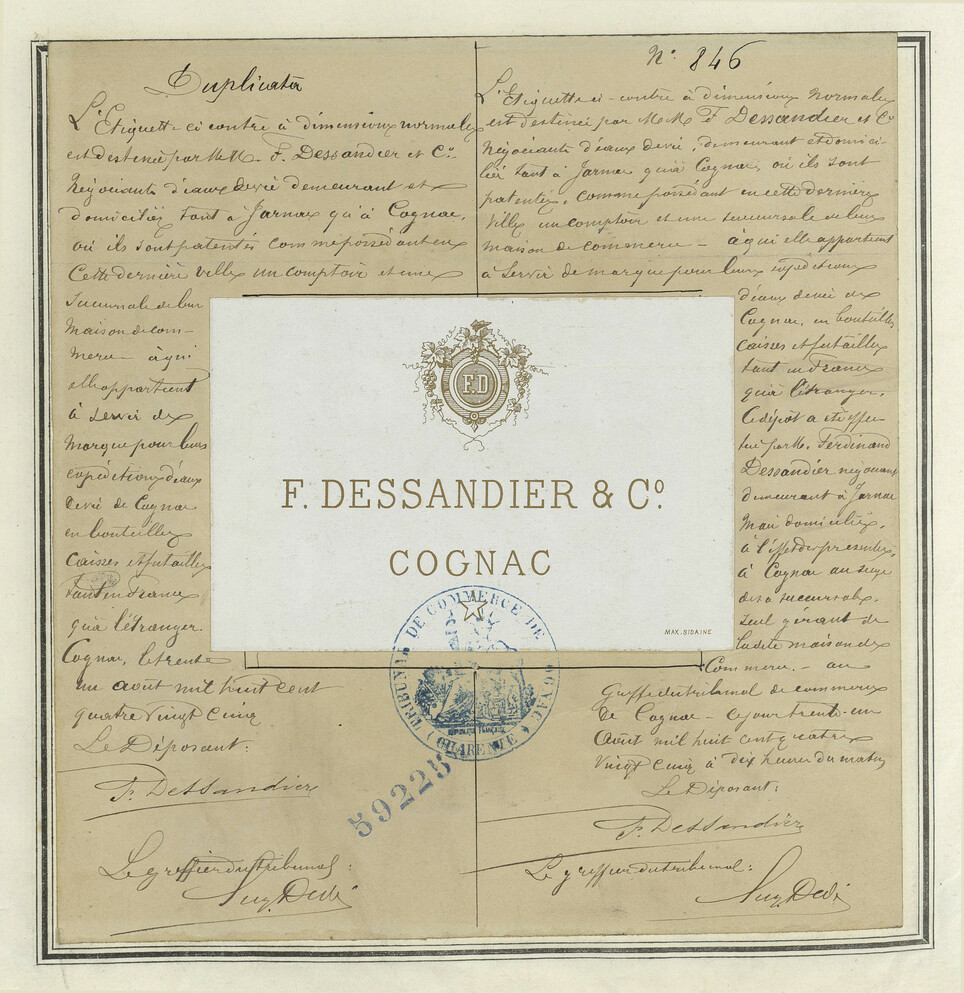 Duplicata
L'Etiquette ci contre à dimensions normales
est destinée par M.M. F. Dessandier et Co.
Négociants d'eaux de vie demeurant et
domiciliés tant à Jarnac qu'à Cognac,
où ils sont patentés comme possédant en
Cette dernière ville un comptoir et une
succursale de leur
Maison de com-
merce - à qui
elle appartient
à servir de
Marque pour leurs
expéditions d'eaux
de vie de Cognac
en bouteilles
Caisses et futailles
tant en France
qu'à l'étranger.
Cognac, le trente
un août mil huit cent
quatre vingt cinq
Le Déposant:
F. Dessandier
Le greffier du tribunal:
No. 846
L'Etiquette ci-contre à dimensions normales
est destinée par M.M. F. Dessandier et Co
Négociants d'eaux de vie, demeurant et domici-
liés tant à Jarnac qu'à Cognac, où ils sont
patentés, comme possédant en cette dernière
Ville un comptoir et une succursale de leur
Maison de commerce - à qui elle appartient
à servir de marque pour leurs expéditions
d'eaux de vie de
Cognac, en bouteilles
caisses et futailles
tant en France
qu'à l'étranger.
Ce dépôt a été effec
tué par M. Ferdinand
Dessandier négociant
demeurant à Jarnac
Mais domicilié,
à l'effet des présentes,
à Cognac au siège
de sa succursale,
seul gérant de
ladite maison de
Commerce. - au
Greffe du tribunal de commerce
de Cognac - ce jour trente-un
Août mil huit cent quatre
Vingt cinq à dix heures du matin
Le Déposant:
F. Dessandier
Le greffier du tribunal:
F.D
F. DESSANDIER & Co.
COGNAC
MAX. SIDAINE
TRIBUNAL DE COMMERCE DE COGNAC
RÉPUBLIQUE FRANÇAISE
(CHARENTE)
59225